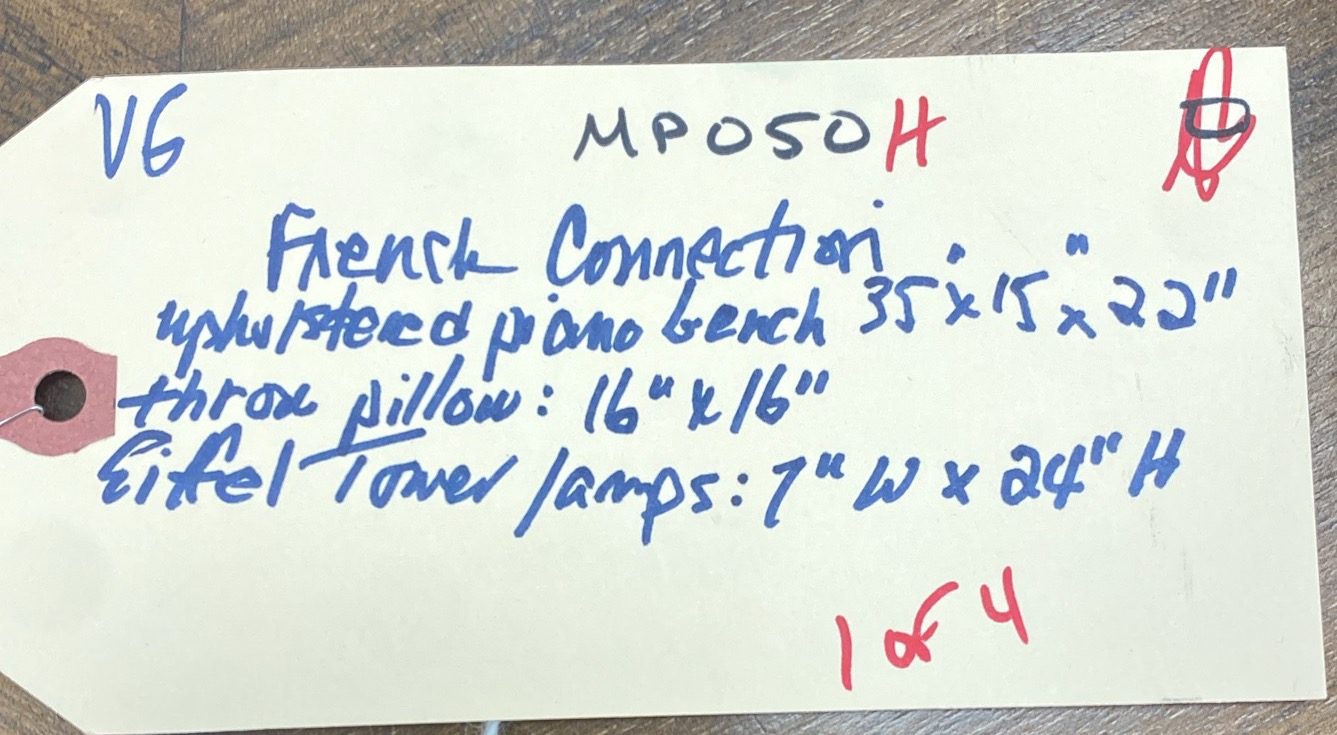 VG MP050H
French Connection
upholstered piano bench 35"x15"x22"
throw pillow: 16"x16"
Eiffel Tower lamps: 7"W x 24"H
1 of 4